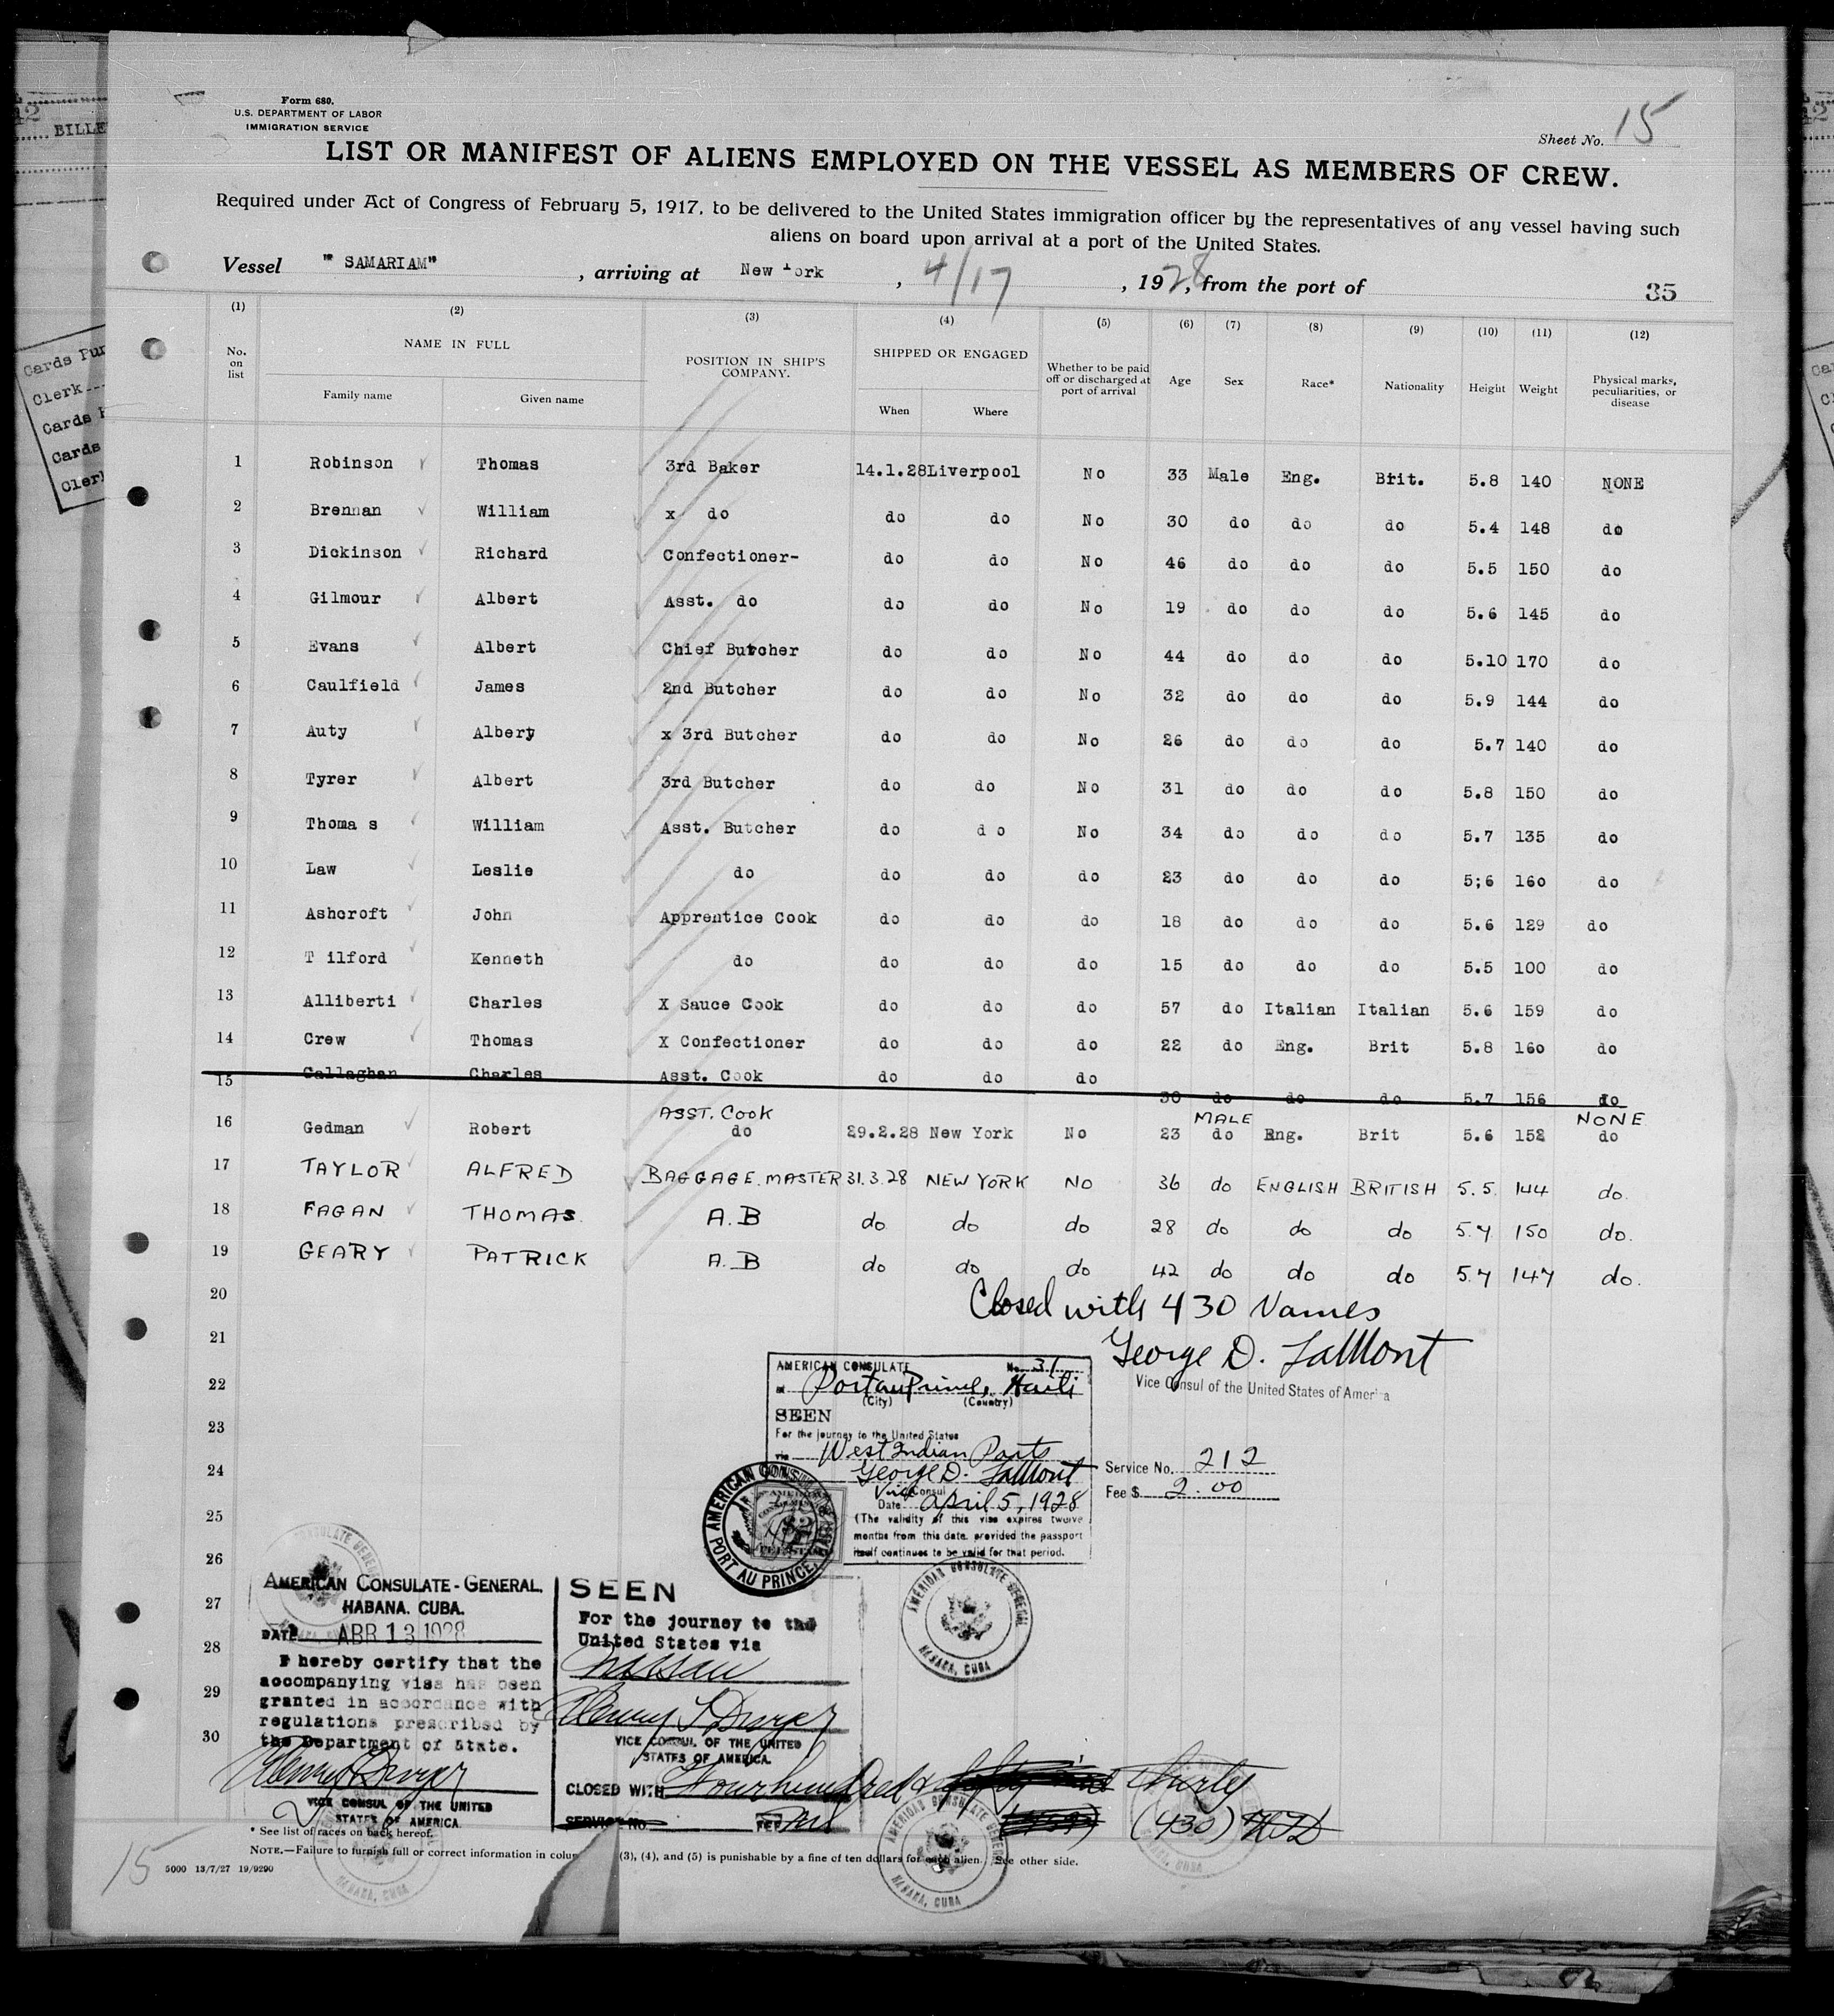 Form 680.
U.S. DEPARTMENT OF LABOR
IMMIGRATION SERVICE
Sheet No. 15
LIST OR MANIFEST OF ALIENS EMPLOYED ON THE VESSEL AS MEMBERS OF CREW.
Required under Act of Congress of February 5, 1917, to be delivered to the United States immigration officer by the representatives of any vessel having such
aliens on board upon arrival at a port of the United States.
Vessel " SAMARIAM" , arriving at New York , 4/17 , 1928, from the port of 35
(1) (2) (3) (4) (5) (6) (7) (8) (9) (10) (11) (12)
No. on list NAME IN FULL Family name Given name POSITION IN SHIP'S COMPANY. SHIPPED OR ENGAGED When Where Whether to be paid off or discharged at port of arrival Age Sex Race* Nationality Height Weight Physical marks, peculiarities, or disease
1 Robinson Thomas 3rd Baker 14.1.28 Liverpool No 33 Male Eng. Brit. 5.8 140 NONE
2 Brennan William x do do do No 30 do do do 5.4 148 do
3 Dickinson Richard Confectioner- do do No 46 do do do 5.5 150 do
4 Gilmour Albert Asst. do do do No 19 do do do 5.6 145 do
5 Evans Albert Chief Butcher do do No 44 do do do 5.10 170 do
6 Caulfield James 2nd Butcher do do No 32 do do do 5.9 144 do
7 Auty Albery x 3rd Butcher do do No 26 do do do 5.7 140 do
8 Tyrer Albert 3rd Butcher do do No 31 do do do 5.8 150 do
9 Thoma s William Asst. Butcher do d o No 34 do do do 5.7 135 do
10 Law Leslie do do do do 23 do do do 5;6 160 do
11 Ashcroft John Apprentice Cook do do do 18 do do do 5.6 129 do
12 T ilford Kenneth do do do do 15 do do do 5.5 100 do
13 Alliberti Charles X Sauce Cook do do do 57 do Italian Italian 5.6 159 do
14 Crew Thomas X Confectioner do do do 22 do Eng. Brit 5.8 160 do
15 Callaghan Charles Asst. Cook do do do 30 do do do 5.7 156 do
ASST. COOK MALE NONE
16 Gedman Robert do 29.2.28 New York No 23 do Eng. Brit 5.6 152 do
17 TAYLOR ALFRED BAGGAGE.MASTER 31.3.28 NEW YORK NO 36 do ENGLISH BRITISH 5.5 144 do.
18 FAGAN THOMAS. A.B do do do 28 do do do 5.7 150 do.
19 GEARY PATRICK A.B do do do 42 do do do 5.7 147 do.
20
Closed with 430 Names
21
George D. LaMont
Vice Consul of the United States of America
22
AMERICAN CONSULATE No. 31
at Port au Prince, Haiti
(City) (Country)
SEEN
For the journey to the United States
via West Indian Ports
George D. LaMont
Vice Consul
Date April 5, 1928
(The validity of this visa expires twelve
months from this date, provided the passport
itself continues to be valid for that period.
Service No. 212
Fee $ 2.00
23
24
25
26
27
28
29
30
AMERICAN CONSULATE
PORT AU PRINCE,
AMERICAN CONSULATE-GENERAL,
HABANA, CUBA.
DATE ABR 13 1928
I hereby certify that the
accompanying visa has been
granted in accordance with
regulations prescribed by
the Department of State.
VICE CONSUL OF THE UNITED
STATES OF AMERICA.
SEEN
For the journey to the
United States via
Nassau
VICE CONSUL OF THE UNITED
STATES OF AMERICA.
CLOSED WITH Four hundred & Thirty
SERVICE No. FEE
(430)
AMERICAN CONSULATE GENERAL
HABANA, CUBA
* See list of races on back hereof.
NOTE.—Failure to furnish full or correct information in colum (3), (4), and (5) is punishable by a fine of ten dollars for each alien. See other side.
5000 13/7/27 19/9290
15
BILLE
Cards Pur
Clerk
Cards
Cards
Clerk